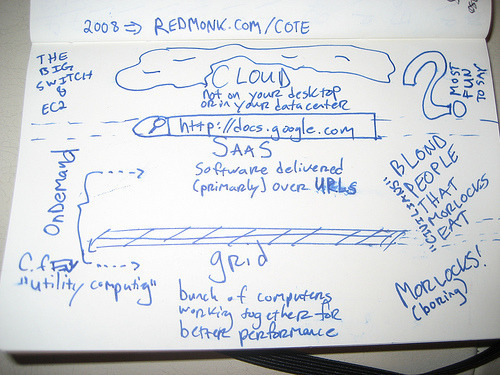 2008 => REDMONK.COM/COTE
THE
BIG
SWITCH
&
EC2
CLOUD
not on your desktop
or in your data center
?
MOST
FUN
TO SAY
http://docs.google.com
SAAS
Software delivered
(primarily) over URLs
OnDemand
BLOND
PEOPLE
THAT
MORLOCKS
EAT
grid
C.f.
"utility computing"
bunch of computers
working together for
better performance
MORLOCKS!
(boring)